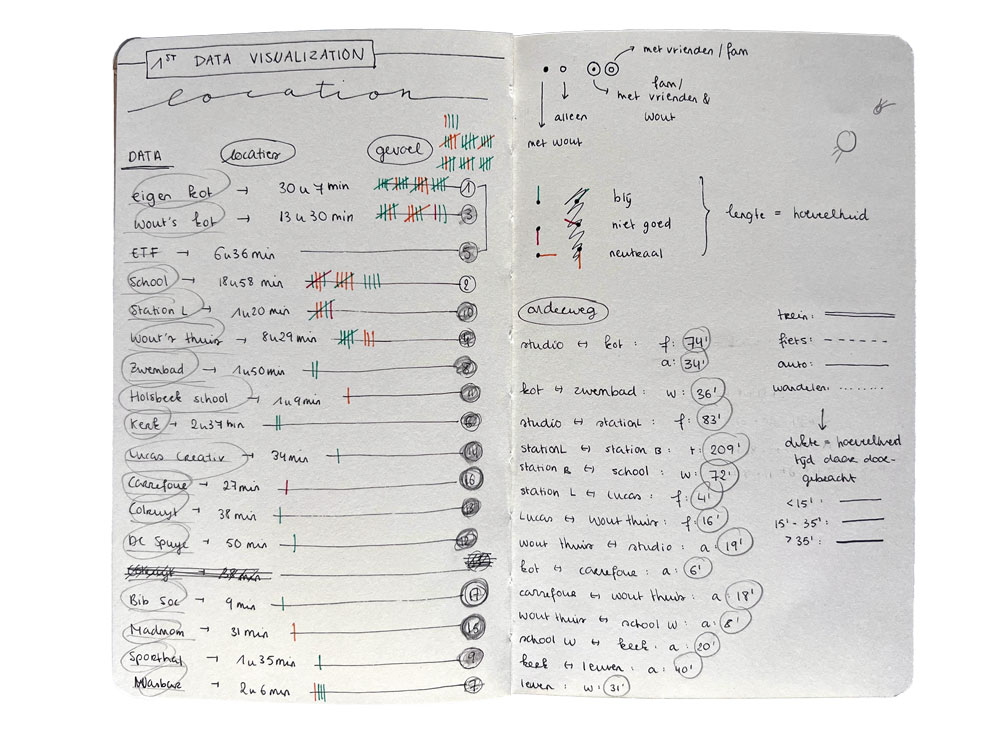 1ST DATA VISUALIZATION
location
DATA locaties gevoel
eigen kot → 30u 7min 1
Wout's kot → 13u 30 min 3
ETF → 6u36min 5
School → 18u58 min 2
Station L → 1u20 min 10
Wout's thuis → 8u29min 4
Zwembad → 1u50min 8
Holsbeek school → 1u9min 11
Kerk → 2u37min 6
Lucas Creativ → 34min 14
Carrefour → 27min 16
Colruyt → 38 min 13
De Spuye → 50 min 12
Bib Soc → 9 min 17
Madmom → 31 min 15
Sporthal → 1u35min 9
→ 2u 6min 7
met vrienden/fam
fam/
met vrienden &
wout
alleen
met wout
blij
niet goed
neutraal
lengte = hoeveelheid
onderweg
studio ↔ kot: f: 74'
a: 34'
kot ↔ zwembad: w: 36'
studio ↔ stationL: f: 83'
stationL ↔ station B: t: 209'
station B ↔ school: w: 72'
station L ↔ Lucas: f: 4'
Lucas ↔ wout thuis: f: 16'
wout thuis ↔ studio: a: 19'
kot ↔ carrefour: a: 6'
carrefour ↔ wout thuis: a: 18'
wout thuis ↔ school W: a: 8'
school W ↔ kerk: a: 20'
kerk ↔ leuven: a: 40'
leuven: w: 31'
trein:
fiets:
auto:
wandelen:
dikte = hoeveelheid
tijd daar door-
gebracht
<15':
15' - 35':
>35':